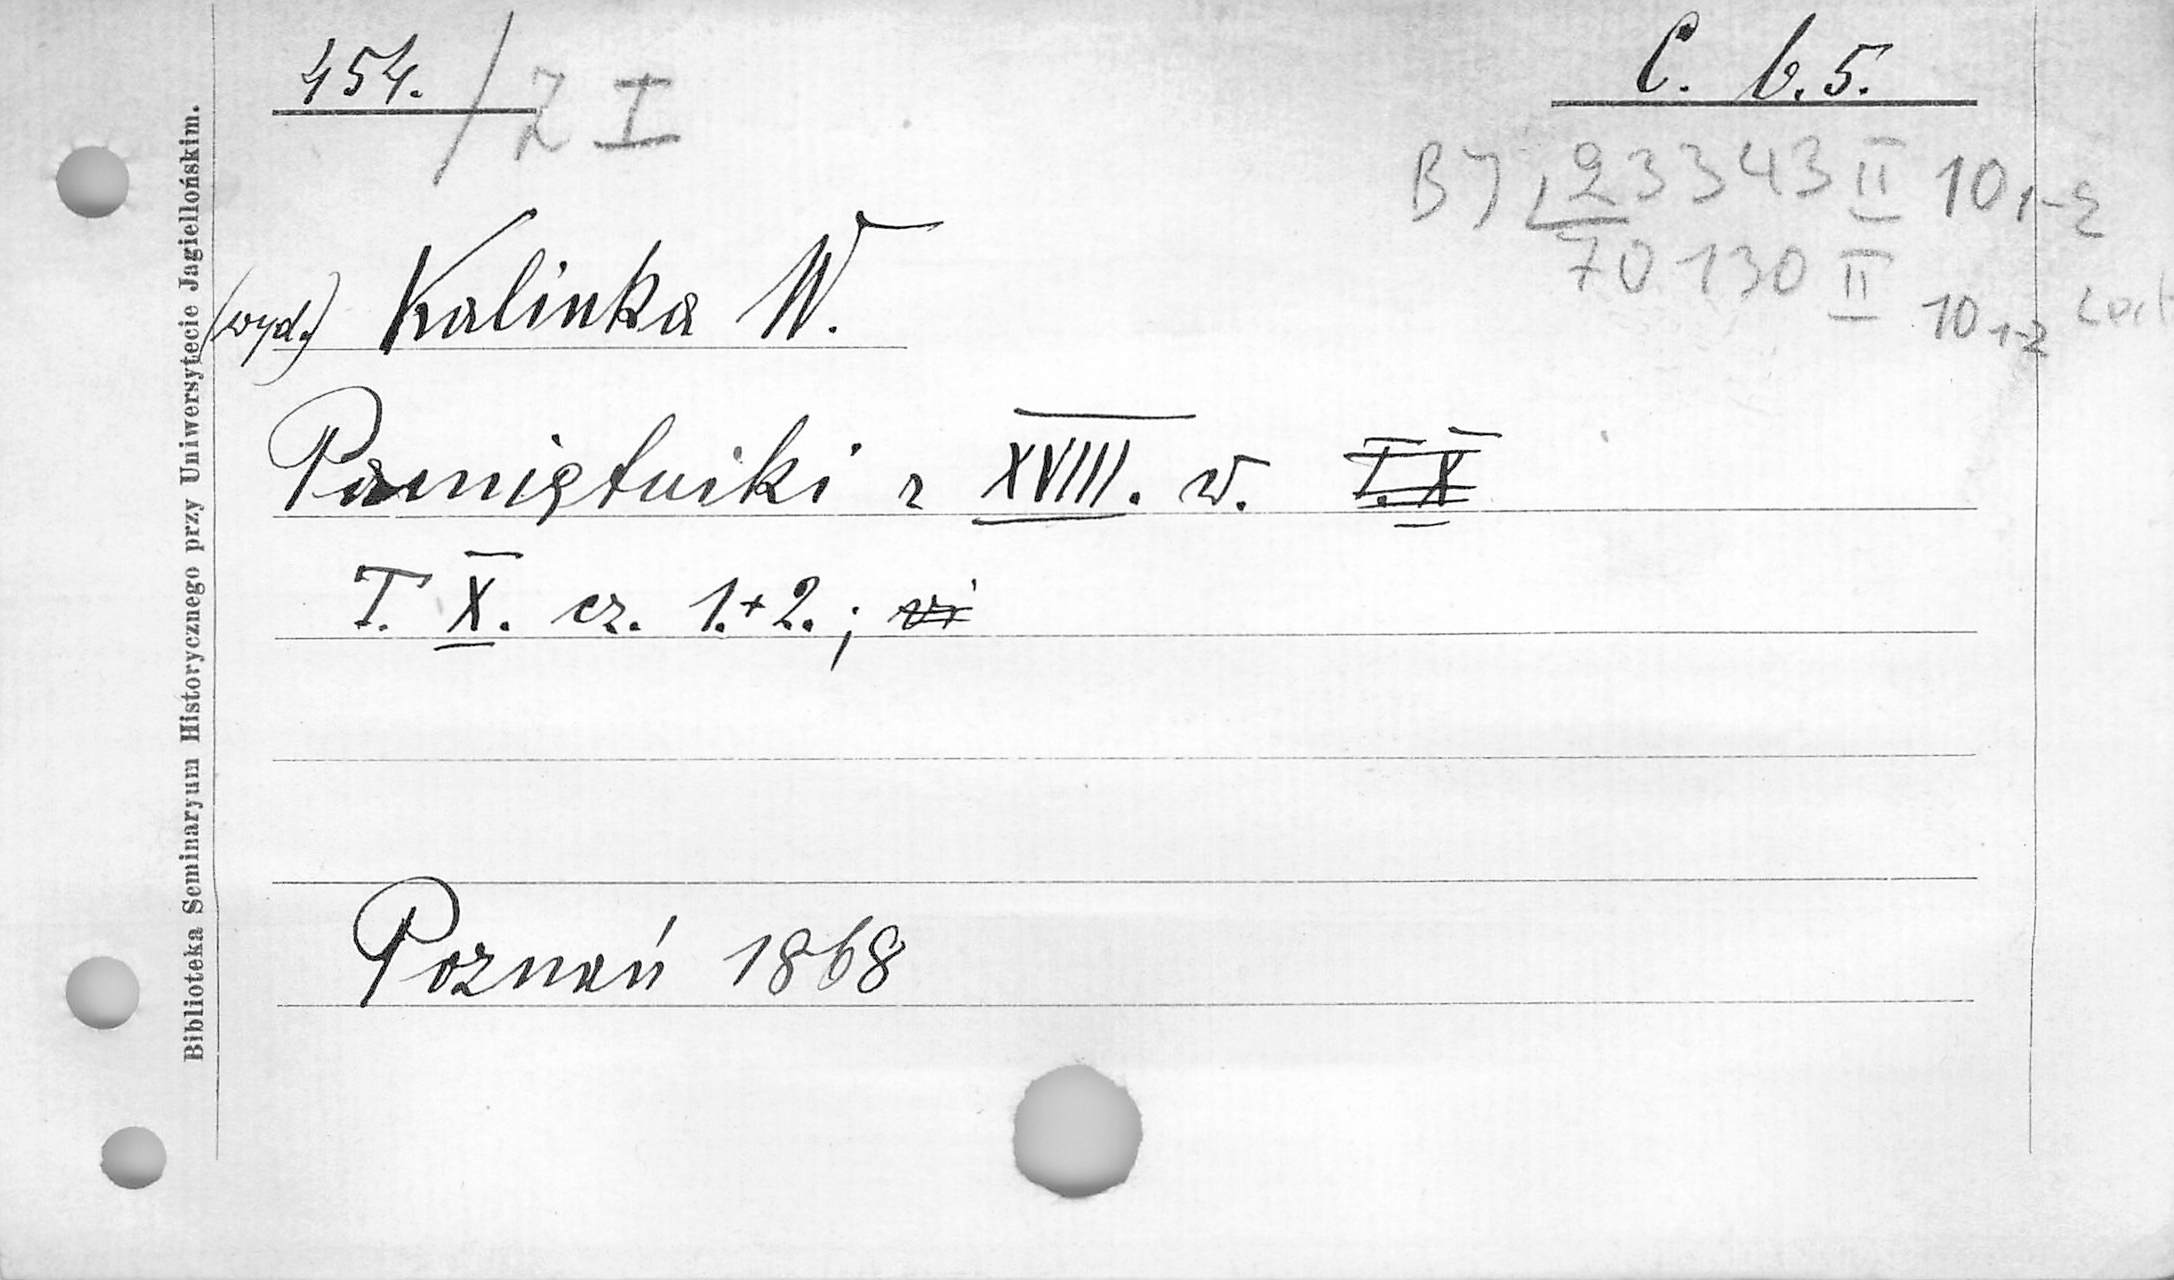 454. / Z I
C. b. 5.
BJ 23343 II 10 1-2
70130 II 10 1-2
(wyd.) Kalinka W.
Pamiętniki z XVIII. w. T. X
T. X. cz. 1.+2.;
Poznań 1868
Biblioteka Seminaryum Historycznego przy Uniwersytecie Jagiellońskim.